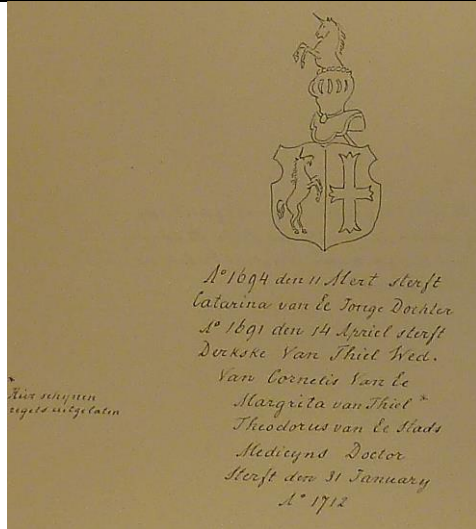 Aº 1694 den 11 Mert sterft
Catarina van Ec Jonge Dochter
Aº 1691 den 14 Apriel sterft
Derkske Van Thiel Wed.
Van Cornelis Van Ec
Margrita van Thiel *
Theodorus van Ec Stads
Medicyns Doctor
Sterft den 31 January
Aº 1712
* Hier schynen
regels uitgelaten